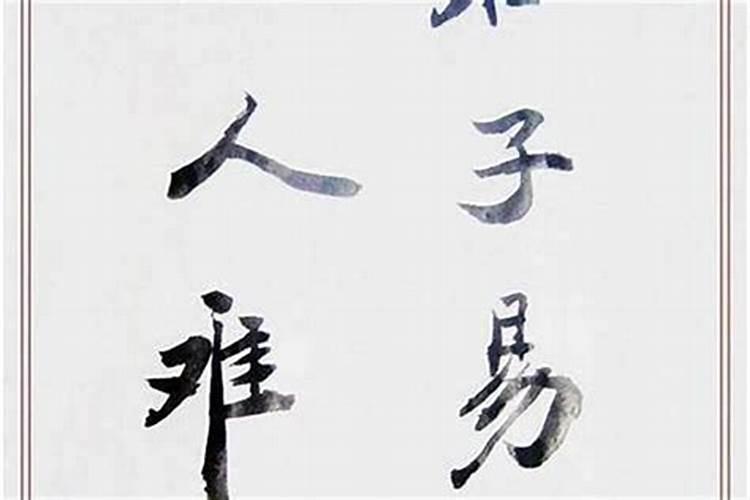 子易
人难